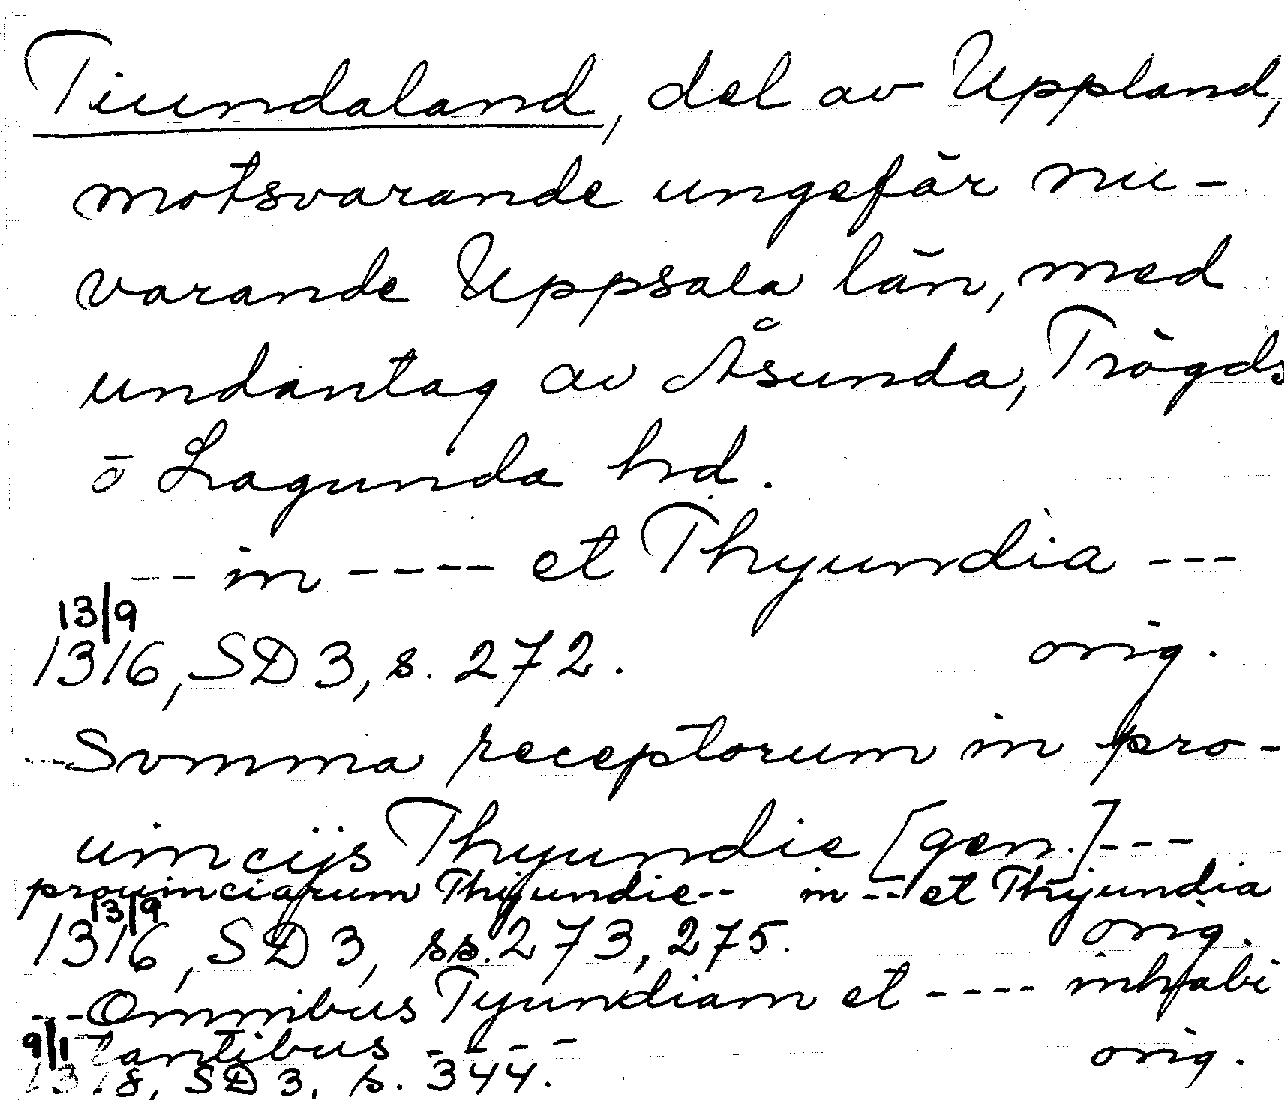 Tiundaland, del av Uppland,
motsvarande ungefär nu-
varande Uppsala län, med
undantag av Åsunda, Trögds
o Lagunda hd.
-- in ---- et Thyundia ---
13/9
1316, SD 3, s. 272. orig.
--- Svmma receptorum in pro-
uincijs Thyundie [gen.] ---
prouinciarum Thijundie-- in -- et Thijundia
13/9
1316, SD 3, ss. 273, 275. orig.
--- Omnibus Tyundiam et ---- inhabi
tantibus ---- orig.
9/1
1318, SD 3, s. 344.